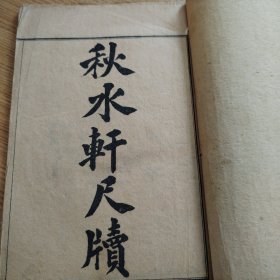 秋水軒尺牘